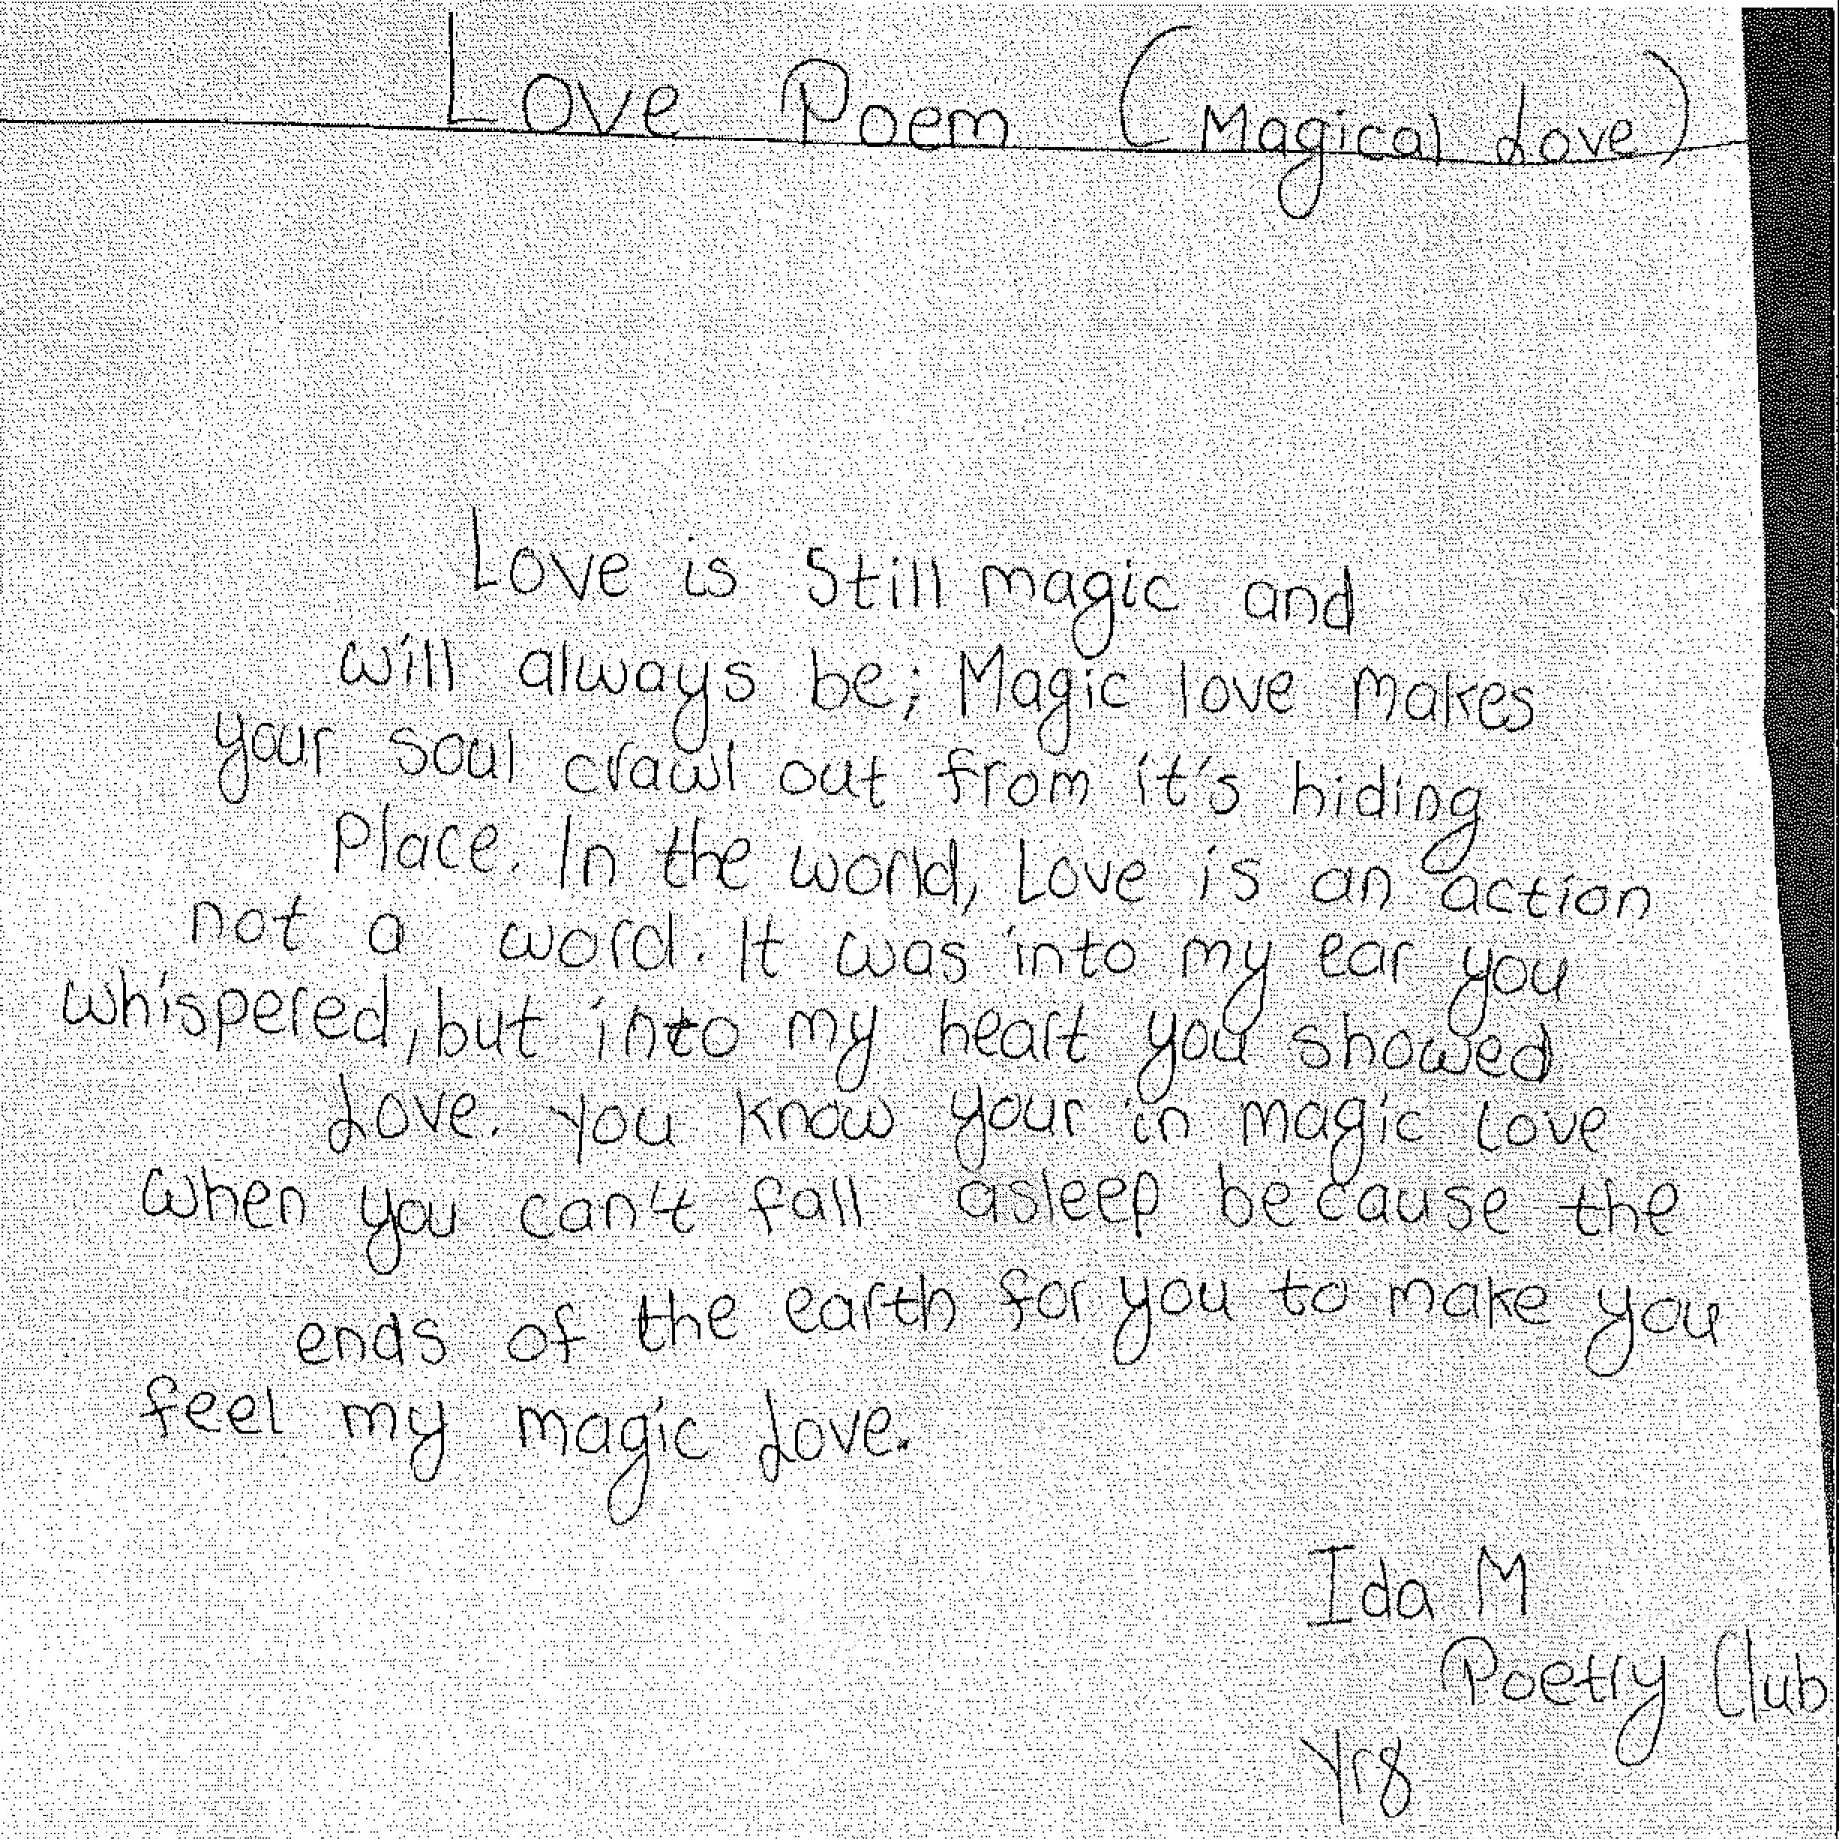 Love Poem (Magical Love)
Love is Still magic and
will always be; Magic love makes
your soul crawl out from it's hiding
Place. In the world, Love is an action
not a word. It was into my ear you
whispered, but into my heart you showed
Love. You know your in magic love
when you can't fall asleep because the
ends of the earth for you to make you
feel my magic Love.
Ida M
Poetry Club
Yr8